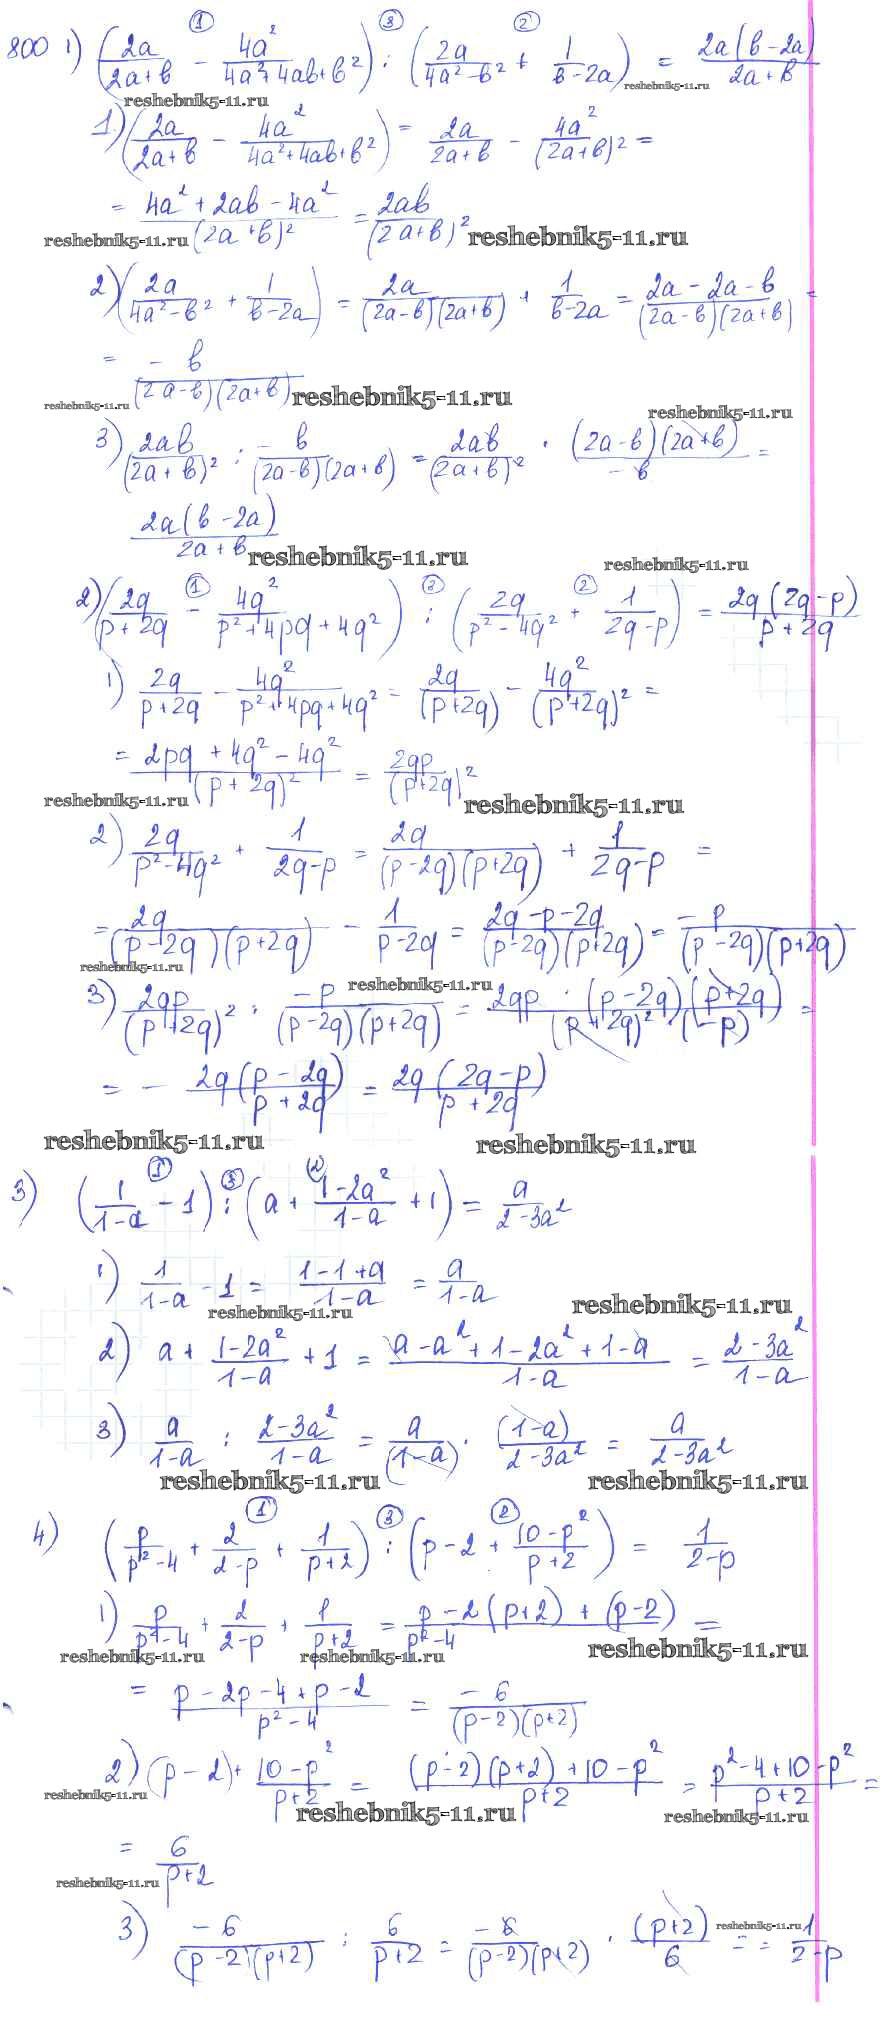 ① ③ ②
800 1) (2a/(2a+в) - 4a²/(4a²+4aв+в²)) : (2a/(4a²-в²) + 1/(в-2a)) = 2a(в-2a)/(2a+в)
reshebnik5-11.ru reshebnik5-11.ru
1) (2a/(2a+в) - 4a²/(4a²+4aв+в²)) = 2a/(2a+в) - 4a²/(2a+в)² =
= (4a²+2aв-4a²)/(2a+в)² = 2aв/(2a+в)²
reshebnik5-11.ru reshebnik5-11.ru
2) (2a/(4a²-в²) + 1/(в-2a)) = 2a/((2a-в)(2a+в)) + 1/(в-2a) = (2a-2a-в)/((2a-в)(2a+в)) =
= -в/((2a-в)(2a+в))
reshebnik5-11.ru reshebnik5-11.ru reshebnik5-11.ru
3) 2aв/(2a+в)² : -в/((2a-в)(2a+в)) = 2aв/(2a+в)² · (2a-в)(2a+в)/-в =
2a(в-2a)/(2a+в)
reshebnik5-11.ru reshebnik5-11.ru
① ③ ②
2) (2q/(p+2q) - 4q²/(p²+4pq+4q²)) : (2q/(p²-4q²) + 1/(2q-p)) = 2q(2q-p)/(p+2q)
1) 2q/(p+2q) - 4q²/(p²+4pq+4q²) = 2q/(p+2q) - 4q²/(p+2q)² =
= (2pq+4q²-4q²)/(p+2q)² = 2qp/(p+2q)²
reshebnik5-11.ru reshebnik5-11.ru
2) 2q/(p²-4q²) + 1/(2q-p) = 2q/((p-2q)(p+2q)) + 1/(2q-p) =
= 2q/((p-2q)(p+2q)) - 1/(p-2q) = (2q-p-2q)/((p-2q)(p+2q)) = -p/((p-2q)(p+2q))
reshebnik5-11.ru reshebnik5-11.ru
3) 2qp/(p+2q)² : -p/((p-2q)(p+2q)) = 2qp·(p-2q)(p+2q)/((p+2q)²·(-p)) =
= - 2q(p-2q)/(p+2q) = 2q(2q-p)/(p+2q)
reshebnik5-11.ru reshebnik5-11.ru
① ③ ②
3) (1/(1-a) - 1) : (a + (1-2a²)/(1-a) + 1) = a/(2-3a²)
1) 1/(1-a) - 1 = (1-1+a)/(1-a) = a/(1-a)
reshebnik5-11.ru reshebnik5-11.ru
2) a + (1-2a²)/(1-a) + 1 = (a-a²+1-2a²+1-a)/(1-a) = (2-3a²)/(1-a)
3) a/(1-a) : (2-3a²)/(1-a) = a/(1-a) · (1-a)/(2-3a²) = a/(2-3a²)
reshebnik5-11.ru reshebnik5-11.ru
① ③ ②
4) (p/(p²-4) + 2/(2-p) + 1/(p+2)) : (p-2 + (10-p²)/(p+2)) = 1/(2-p)
1) p/(p²-4) + 2/(2-p) + 1/(p+2) = (p-2(p+2)+(p-2))/(p²-4) =
reshebnik5-11.ru reshebnik5-11.ru reshebnik5-11.ru
= (p-2p-4+p-2)/(p²-4) = -6/((p-2)(p+2))
2) (p-2) + (10-p²)/(p+2) = ((p-2)(p+2)+10-p²)/(p+2) = (p²-4+10-p²)/(p+2) =
reshebnik5-11.ru reshebnik5-11.ru reshebnik5-11.ru
= 6/(p+2)
reshebnik5-11.ru
3) -6/((p-2)(p+2)) : 6/(p+2) = -6/((p-2)(p+2)) · (p+2)/6 = = 1/(2-p)
reshebnik5-11.ru